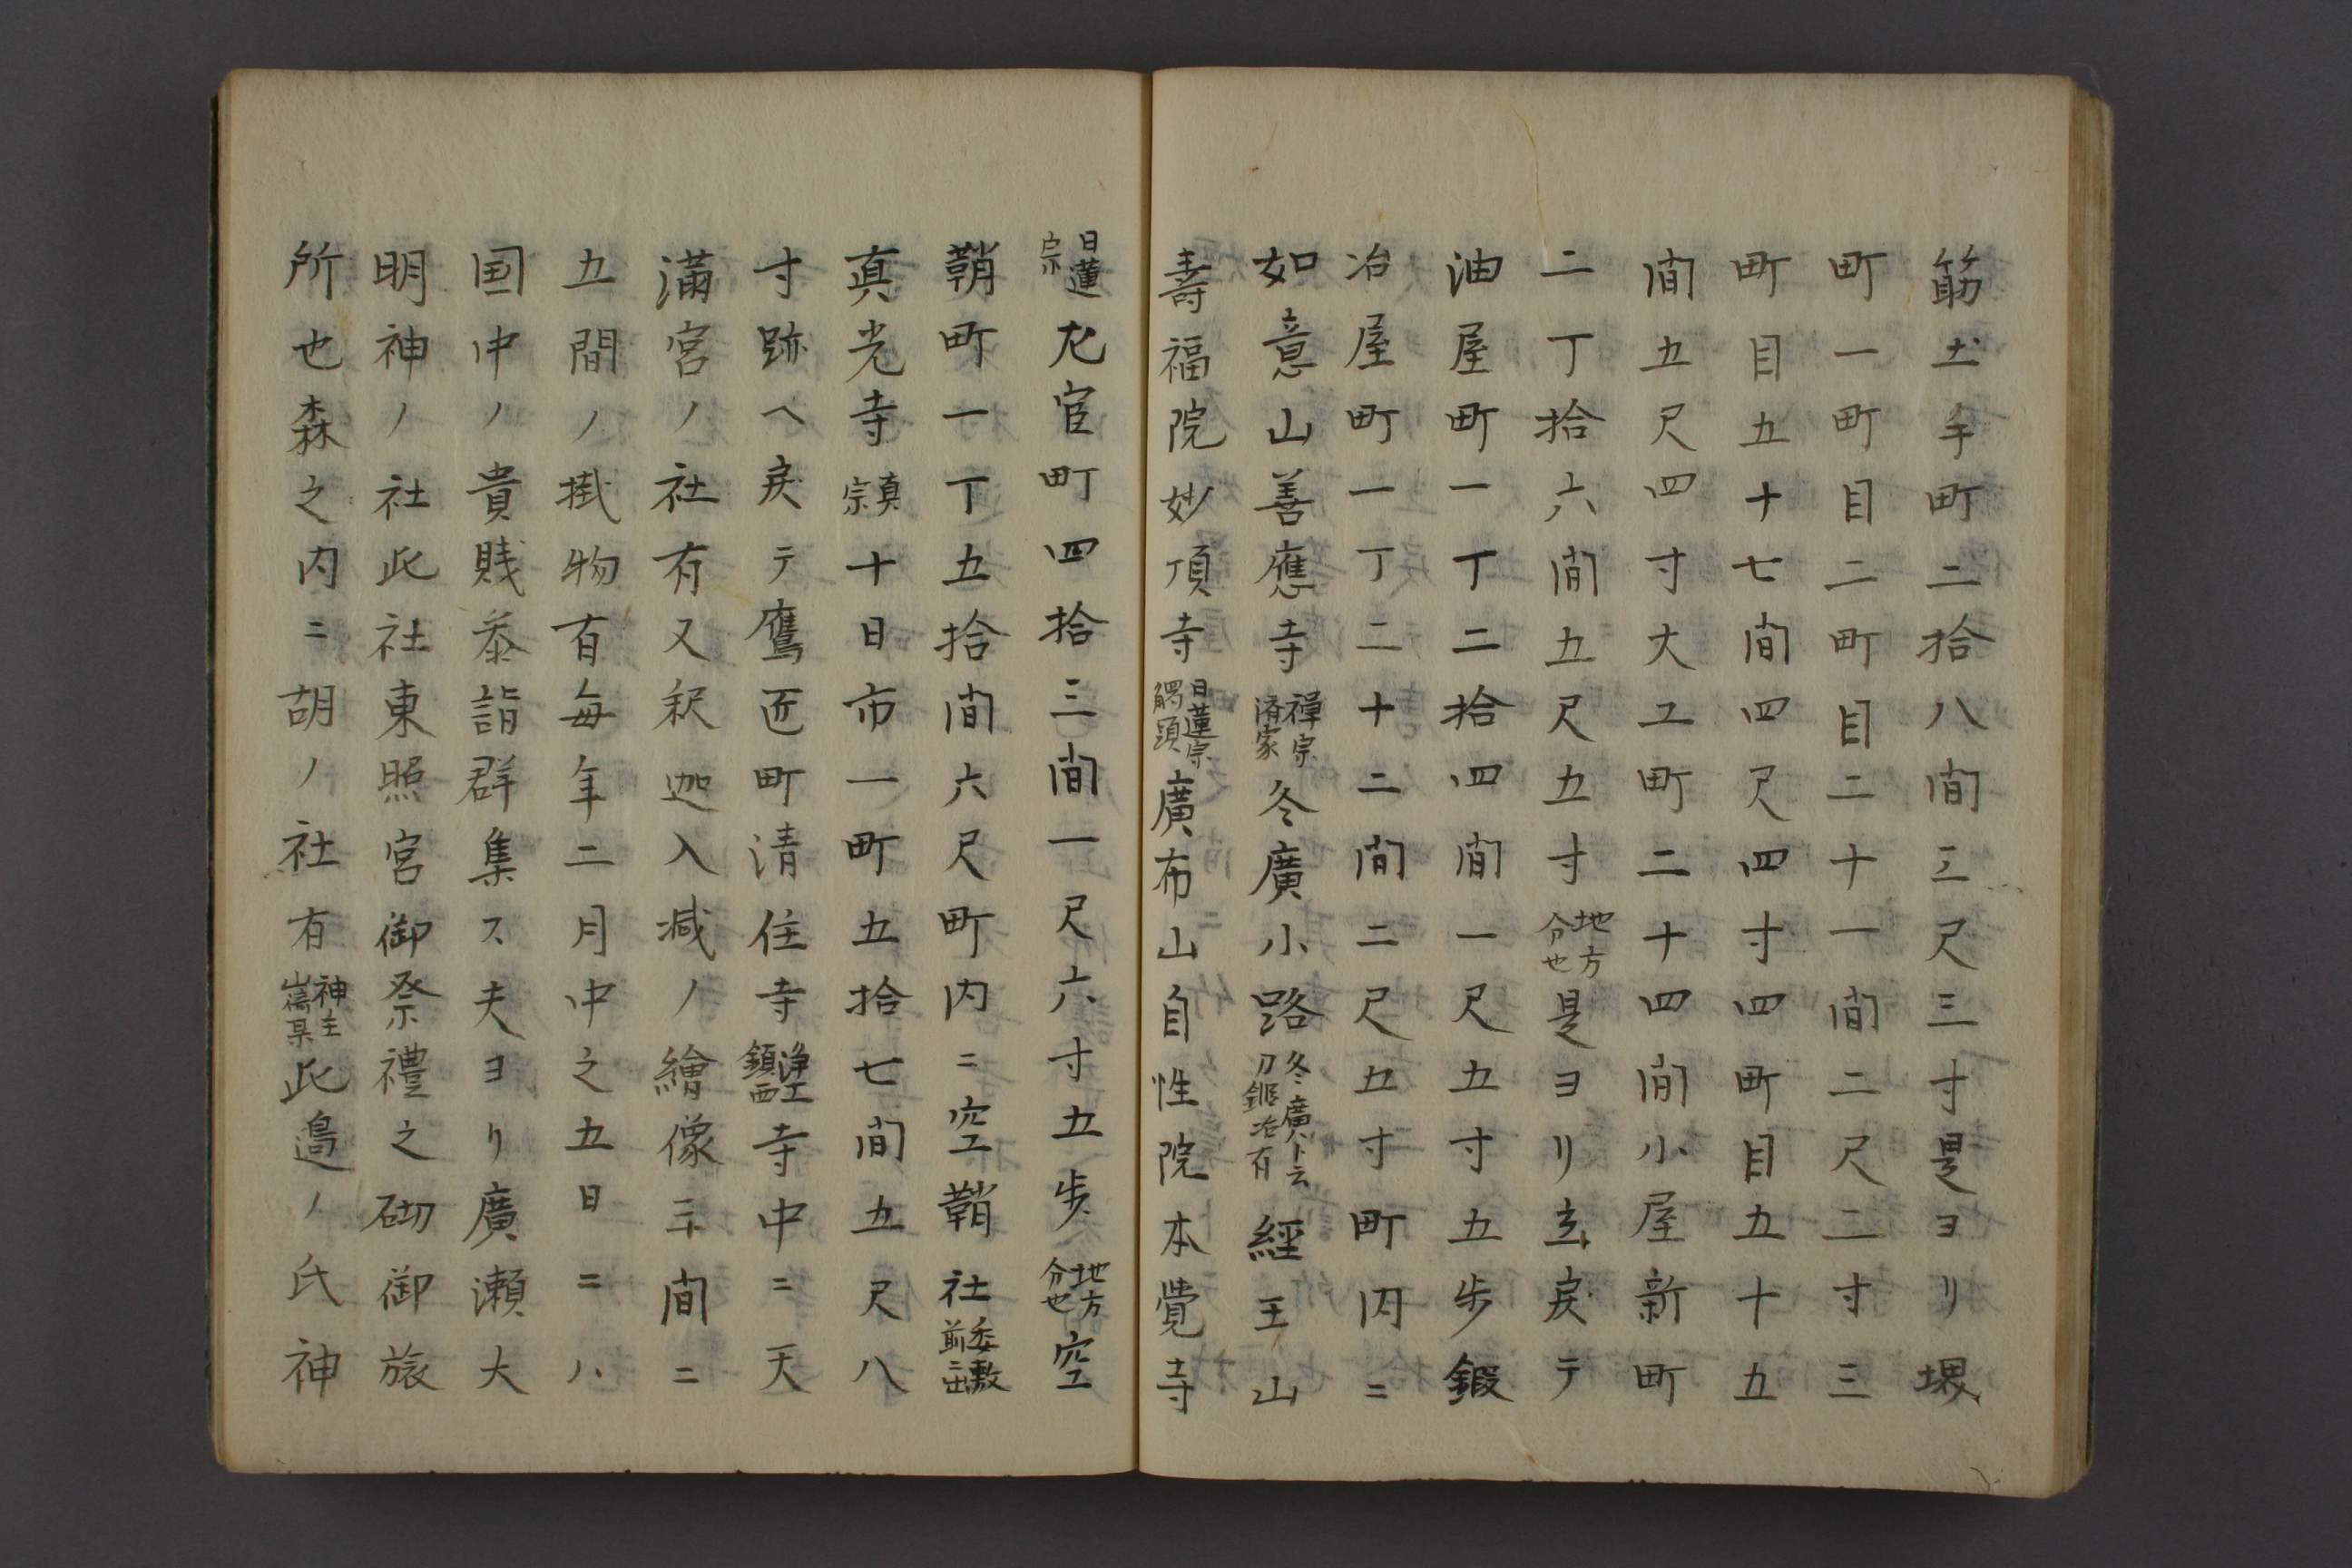 筋土手町二拾八間三尺三寸是ヨリ堺
町一町目二町目二十一間二尺二寸三
町目五十七間四尺四寸四町目五十五
間五尺四寸大工町二十四間小屋新町
二丁拾六間五尺五寸地方分也是ヨリ立戻テ
油屋町一丁二拾四間一尺五寸五歩鍜
冶屋町一丁二十二間二尺五寸町内ニ
如意山善應寺禅宗済家冬廣小路冬廣ト云刀鍜冶有經王山
壽福院妙頂寺日蓮宗觸頭廣布山自性院本覺寺
日蓮宗尨官町四拾三間一尺六寸五歩地方分也空
鞘町一丁五拾間六尺町内ニ空鞘社委敷前ニ出
真光寺真宗十日市一町五拾七間五尺八
寸跡ヘ戻テ鷹匠町清住寺浄土鎮西寺中ニ天
満宮ノ社有又釈迦入减ノ繪像三十間ニ
五間ノ掛物有毎年二月中之五日ニハ
国中ノ貴賎叅詣群集ス夫ヨリ廣瀬大
明神ノ社此社東照宮御祭禮之砌御旅
所也森之内ニ胡ノ社有神主嵩某此邉ノ氏神